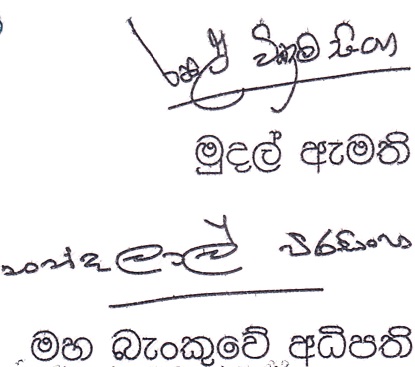 රනිල් වික්‍රමසිංහ
මුදල් ඇමති
නන්දලාල් වීරසිංහ
මහ බැංකුවේ අධිපති